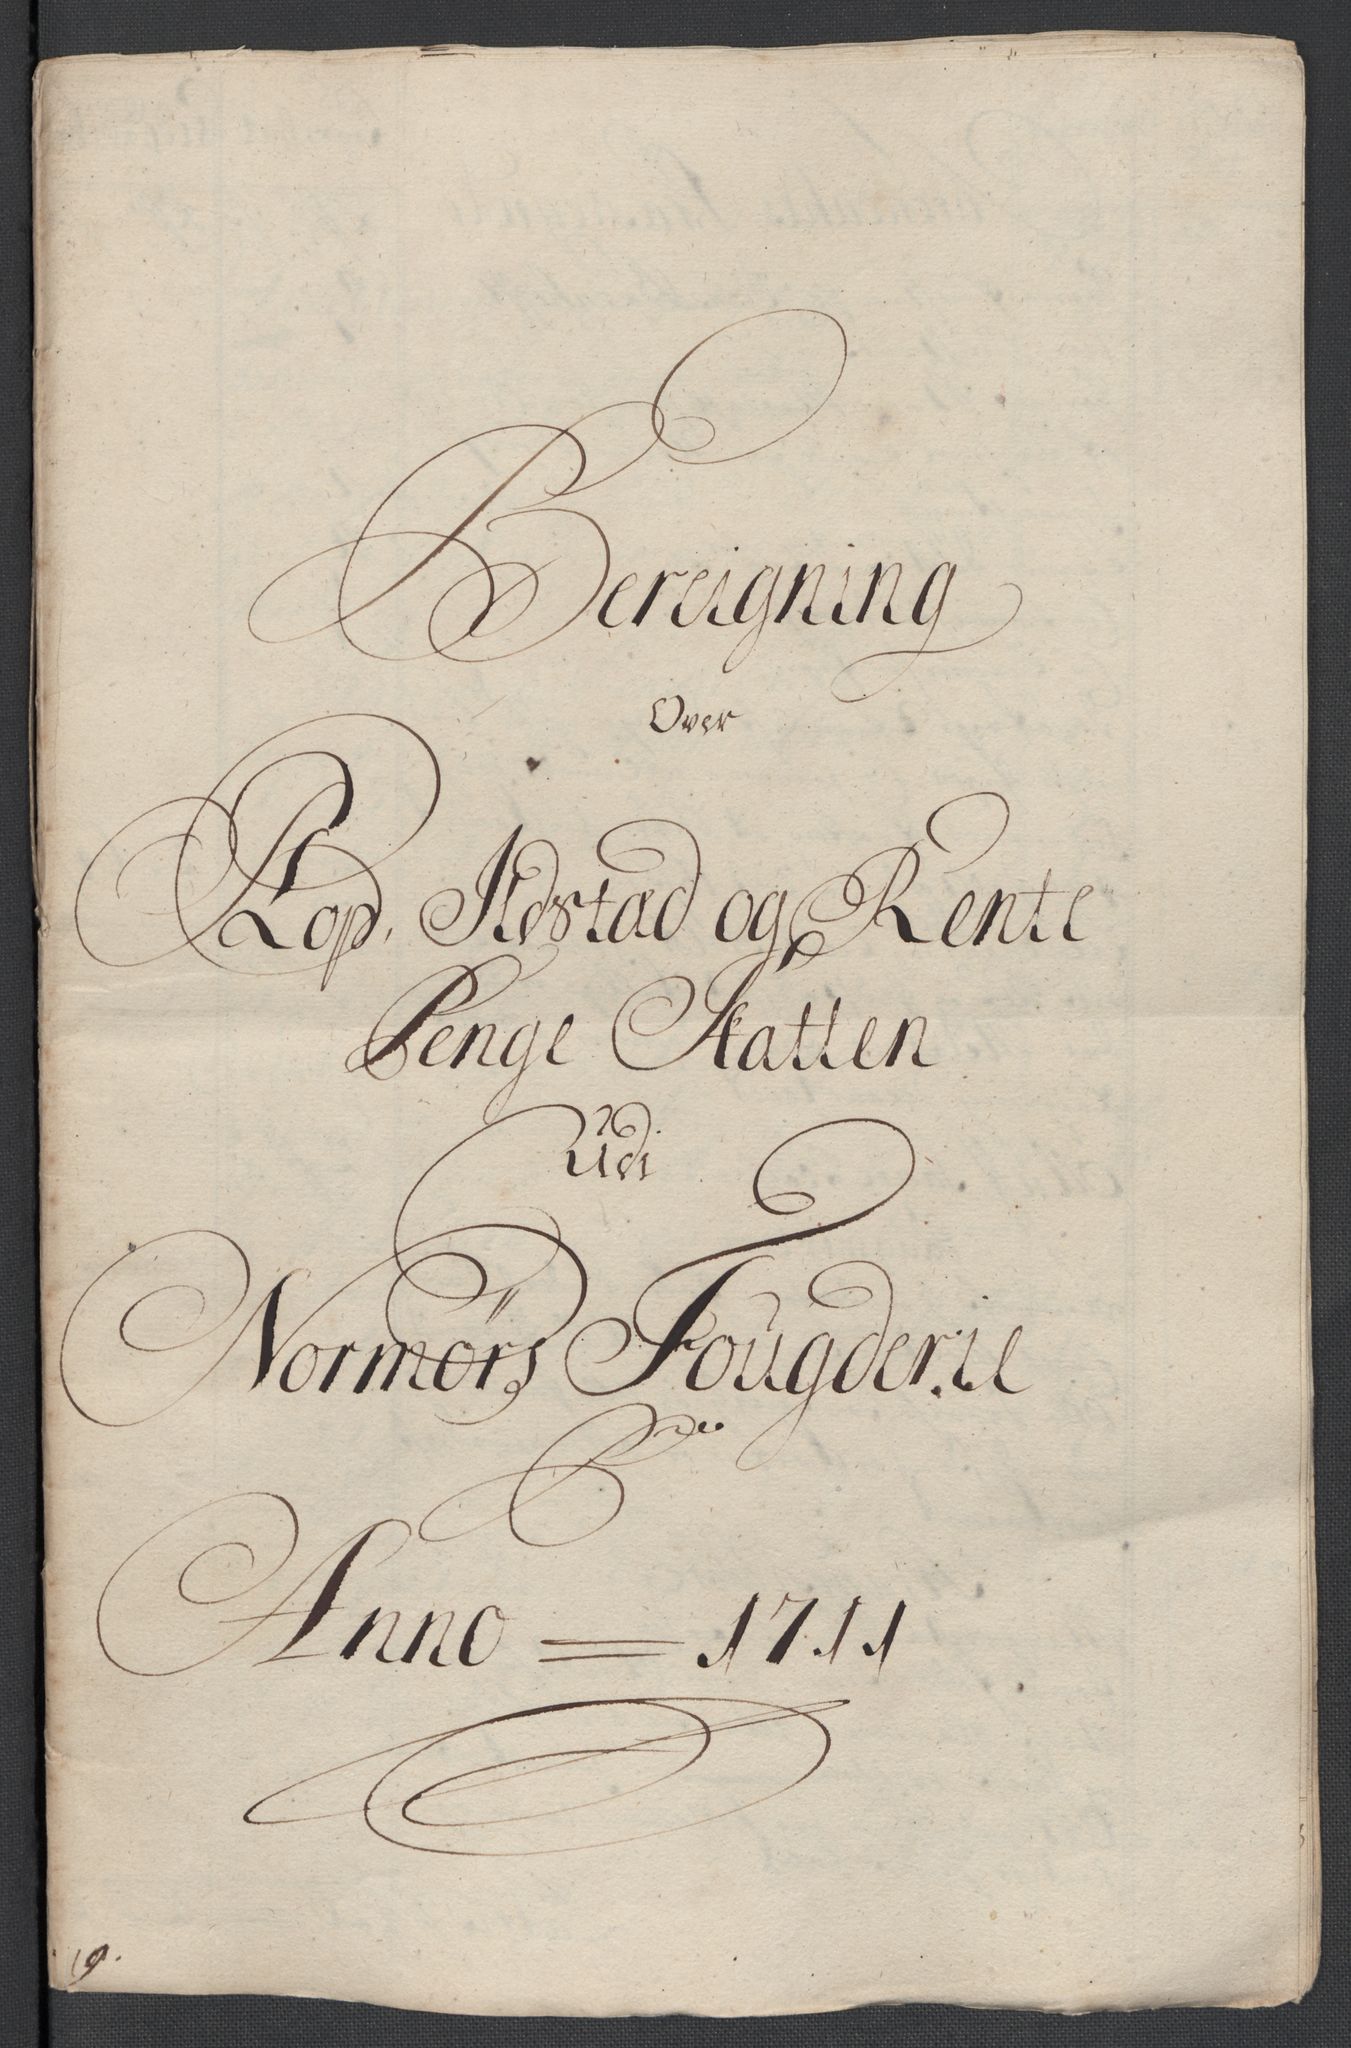 Bereigning
Over
Kop, Ildstæd og Rente
Penge Skatten
Udi
Normørs Fougderie
Anno = 1711
19.